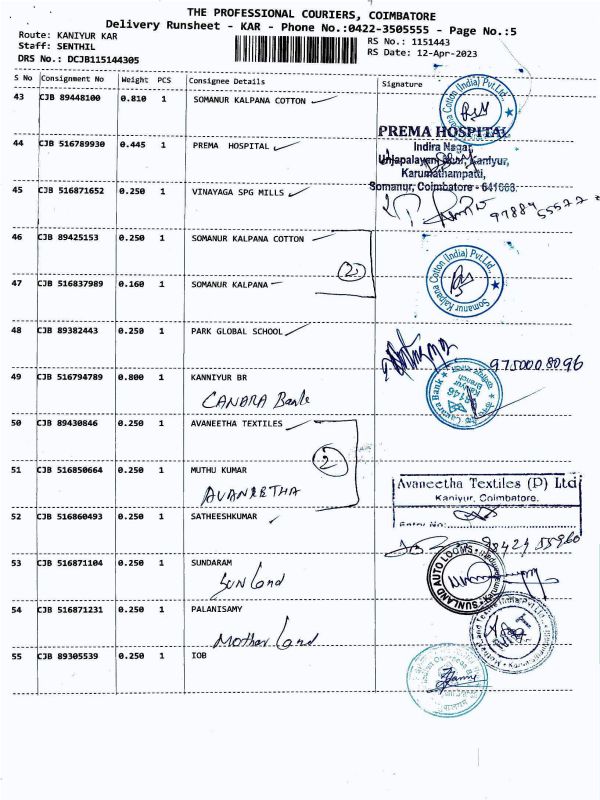 THE PROFESSIONAL COURIERS, COIMBATORE
Delivery Runsheet - KAR - Phone No.:0422-3505555 - Page No.:5
Route: KANIYUR KAR
Staff: SENTHIL
DRS No.: DCJB115144305
RS No.: 1151443
RS Date: 12-Apr-2023
S No Consignment No Weight PCS Consignee Details Signature
43 CJB 89448100 0.810 1 SOMANUR KALPANA COTTON
Cotton (India) Pvt.Ltd.
44 CJB 516789930 0.445 1 PREMA HOSPITAL
PREMA HOSPITAL
Indira Nagar,
Kaniyur,
Karumathampatti,
Somanur, Coimbatore - 641668.
45 CJB 516871652 0.250 1 VINAYAGA SPG MILLS
97884 55577
46 CJB 89425153 0.250 1 SOMANUR KALPANA COTTON
2
Somanur Kalpana Cotton (India) Pvt.Ltd.
47 CJB 516837989 0.160 1 SOMANUR KALPANA
48 CJB 89382443 0.250 1 PARK GLOBAL SCHOOL
9750008096
49 CJB 516794789 0.800 1 KANNIYUR BR
CANARA Bank
Canara Bank
Kaniyur
Branch
50 CJB 89430846 0.250 1 AVANEETHA TEXTILES
2
51 CJB 516850664 0.250 1 MUTHU KUMAR
AVANEETHA
Avaneetha Textiles (P) Ltd
Kaniyur, Coimbatore.
Entry No:
52 CJB 516860493 0.250 1 SATHEESHKUMAR
53 CJB 516871104 0.250 1 SUNDARAM
SUN Land
SUNLAND AUTO LOOMS
54 CJB 516871231 0.250 1 PALANISAMY
Mother Land
55 CJB 89305539 0.250 1 IOB